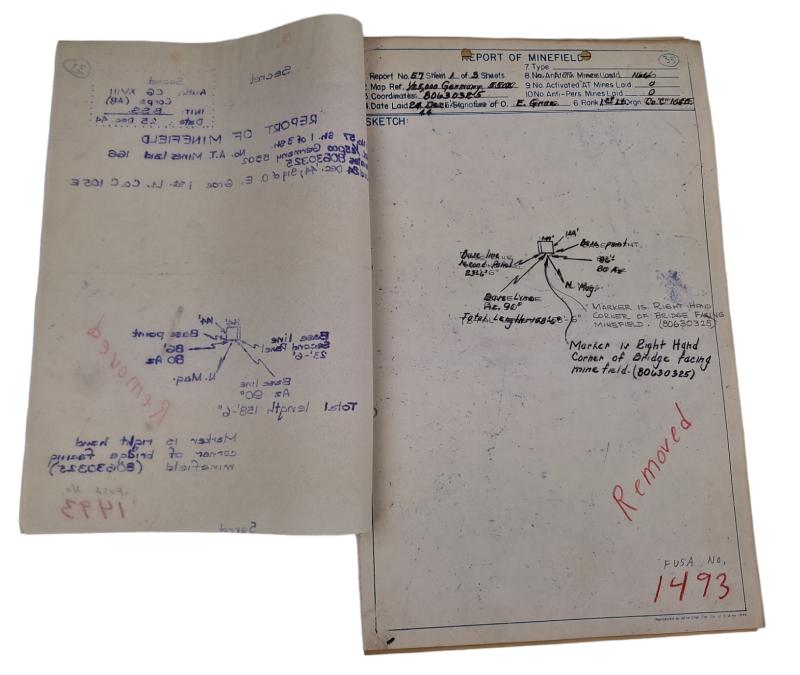 33
Secret
Secret
Auth: CG XVIII
Corps (AB)
INIT: B.S.S.
Date: 25 Dec 44
REPORT OF MINEFIELD
No. 57 Sh. 1 of 3 Sh.
Germany 5502
80630325 No. A.T. Mines laid 166
24 Dec. 44, Sig of O. E. Groe 1st. Lt. Co. C 105 E
44'
Base point
86'
80 Az
N. Mag.
Base line
Second Panel
23'-6'
Base line
Az 90°
Total length 158'-6"
Marker is right hand
corner of bridge facing
minefield (80630325)
Removed
FUSA No.
1493
Secret
REPORT OF MINEFIELD
33
Report No. 57 Sheet 1 of 3 Sheets
7 Type
8. No. Anti-Tank Mines Laid 166
2. Map Ref. 1/25,000 Germany
9 No. Activated AT Mines Laid 0
3 Coordinates 80630325
10 No. Anti-Pers. Mines Laid 0
4 Date Laid 24 Dec 44 5 Signature of O. E. Groe 6 Rank 1st Lt Orgn Co. "C"
SKETCH:
44'
Base point
Base line
Second Panel
23'-6"
86'
80 Az
N. Mag.
Base Line
Az. 90°
Total Length 158'-6"
"MARKER IS RIGHT HAND
CORNER OF BRIDGE FACING
MINEFIELD. (80630325)
Marker is Right Hand
Corner of Bridge facing
mine field. (80630325)
Removed
FUSA NO,
1493